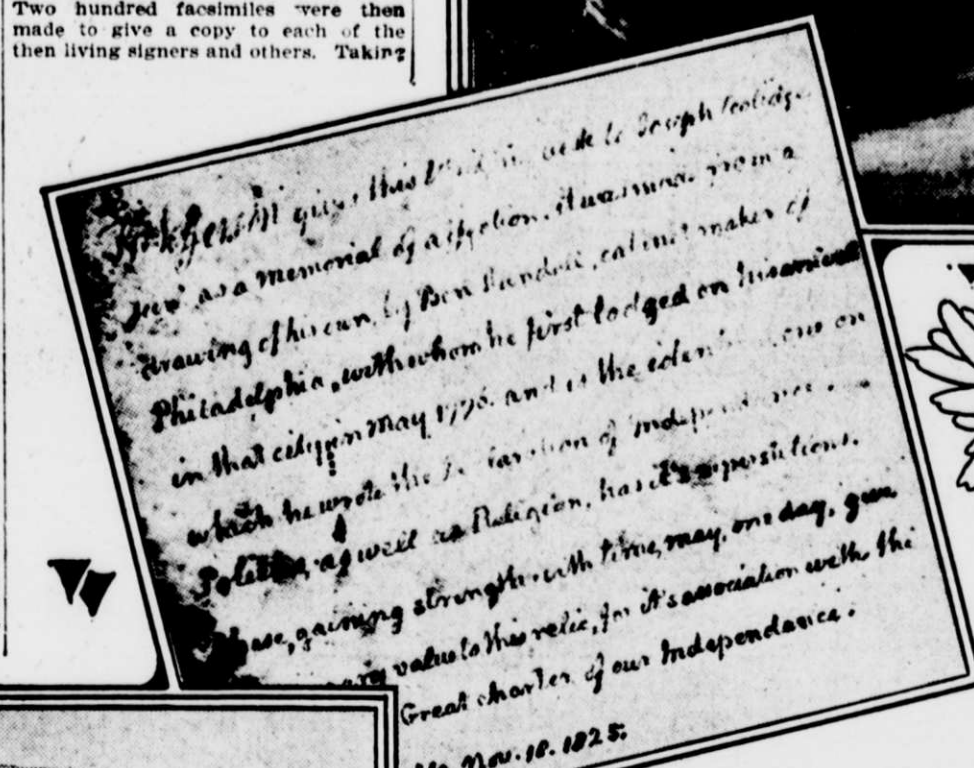 Two hundred facsimiles were then
made to give a copy to each of the
then living signers and others. Taking
gives this to Joseph
as a memorial of affection. it was made from a
drawing of his own, by Ben Randall, cabinet maker of
Philadelphia, with whom he first lodged on his arrival
in that city in May 1776. and is the one on
which he wrote the Declaration of Independance.
Politics, as well as Religion, has it's superstitions.
these, gaining strength with time, may, one day, give
value to this relic, for it's association with the
Great charter of our Independance.
Nov. 18. 1825.